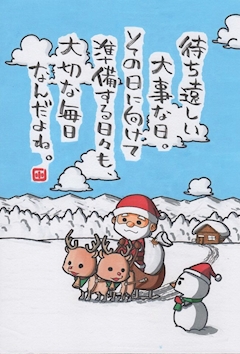 待ち遠しい
大事な日。
その日に向けて
準備する日々も、
大切な毎日
なんだよね。